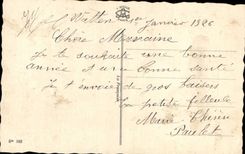 Watten 1er Janvier 1926
Chère Marraine
Je te souhaite une bonne
année et une bonne santé
Je t'envoie de gros baisers
ta petite filleule
Marie Thérèse
Paulet